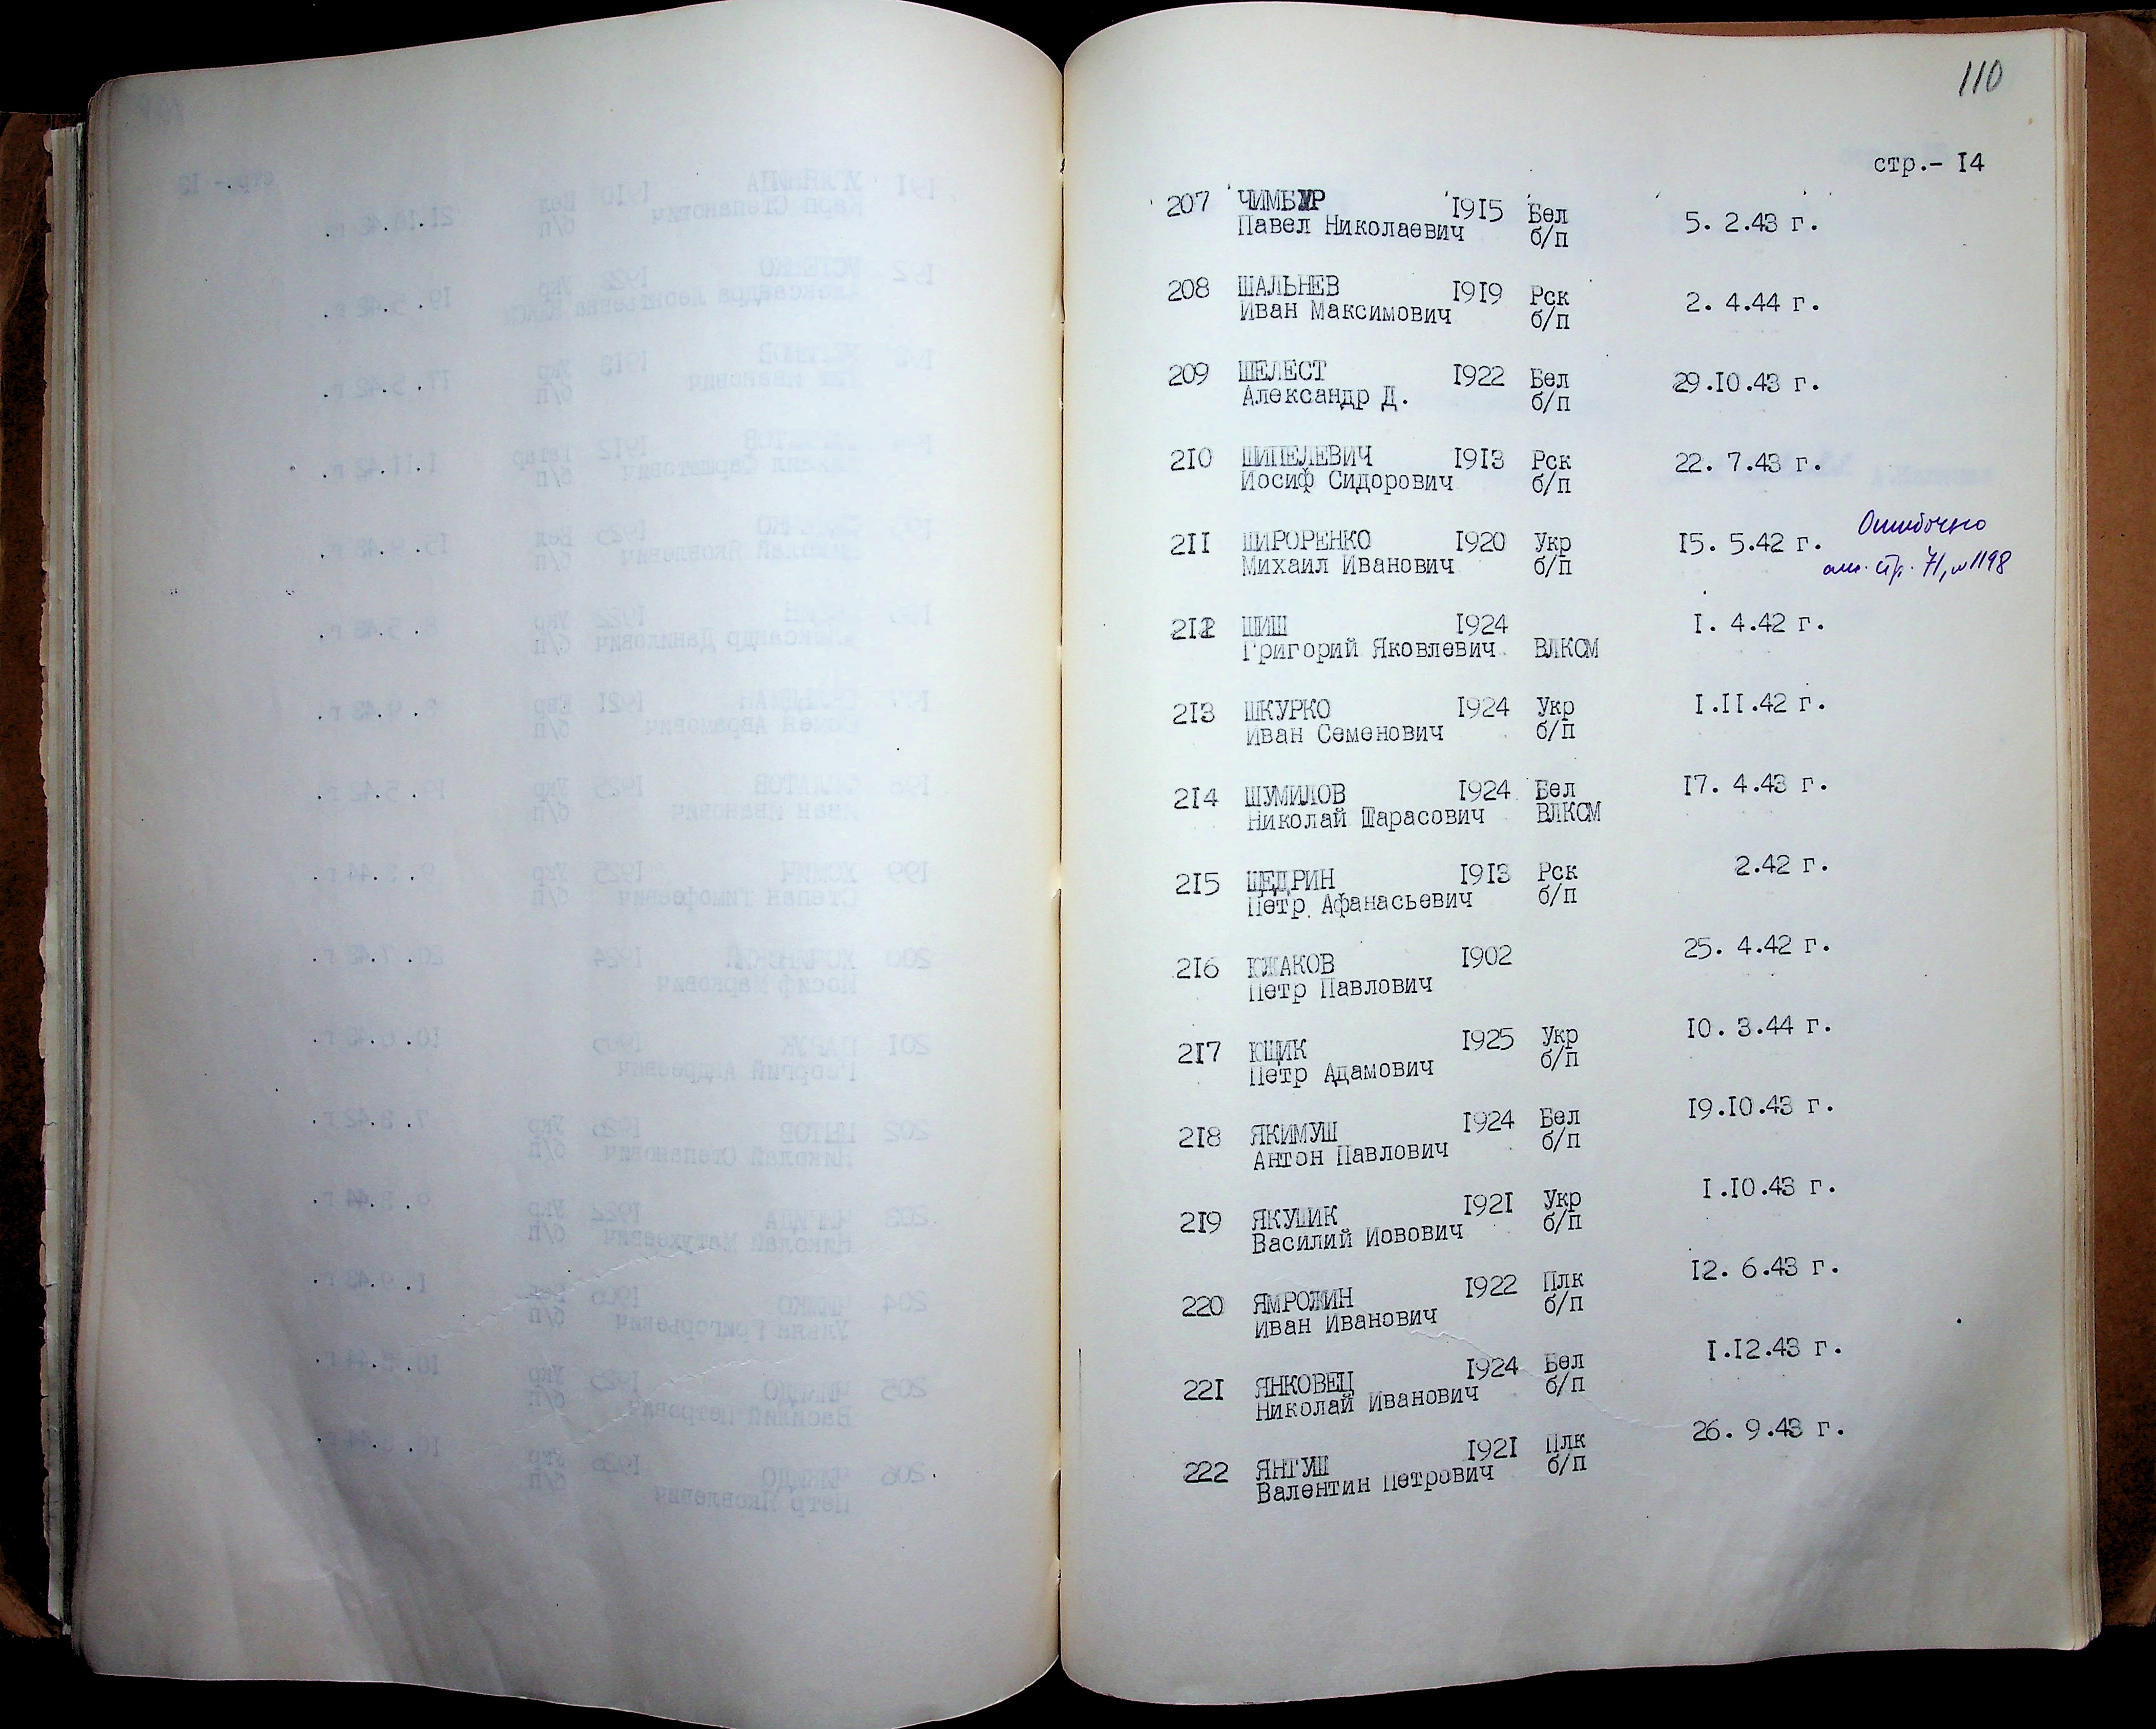 110
стр.- 14
207 ЧИМБУР 1915 Бел 5. 2.43 г.
Павел Николаевич б/п
208 ШАЛЬНЕВ 1919 Рск 2. 4.44 г.
Иван Максимович б/п
209 ШЕЛЕСТ 1922 Бел 29.10.43 г.
Александр Д. б/п
210 ШИПЕЛЕВИЧ 1913 Рск 22. 7.43 г.
Иосиф Сидорович б/п
211 ШИРОРЕНКО 1920 Укр 15. 5.42 г. Ошибочно
Михаил Иванович б/п см. стр. 71, № 1198
212 ШИШ 1924 1. 4.42 г.
Григорий Яковлевич ВЛКСМ
213 ШКУРКО 1924 Укр 1.11.42 г.
Иван Семенович б/п
214 ШУМИЛОВ 1924 Бел 17. 4.43 г.
Николай Тарасович ВЛКСМ
215 ЩЕДРИН 1913 Рск 2.42 г.
Петр Афанасьевич б/п
216 ЮЖАКОВ 1902 25. 4.42 г.
Петр Павлович
217 ЮЩИК 1925 Укр 10. 3.44 г.
Петр Адамович б/п
218 ЯКИМУШ 1924 Бел 19.10.43 г.
Антон Павлович б/п
219 ЯКУЦИК 1921 Укр 1.10.43 г.
Василий Иовович б/п
220 ЯМРОЖИН 1922 Плк 12. 6.43 г.
Иван Иванович б/п
221 ЯНКОВЕЦ 1924 Бел 1.12.43 г.
Николай Иванович б/п
222 ЯНТУШ 1921 Плк 26. 9.43 г.
Валентин Петрович б/п